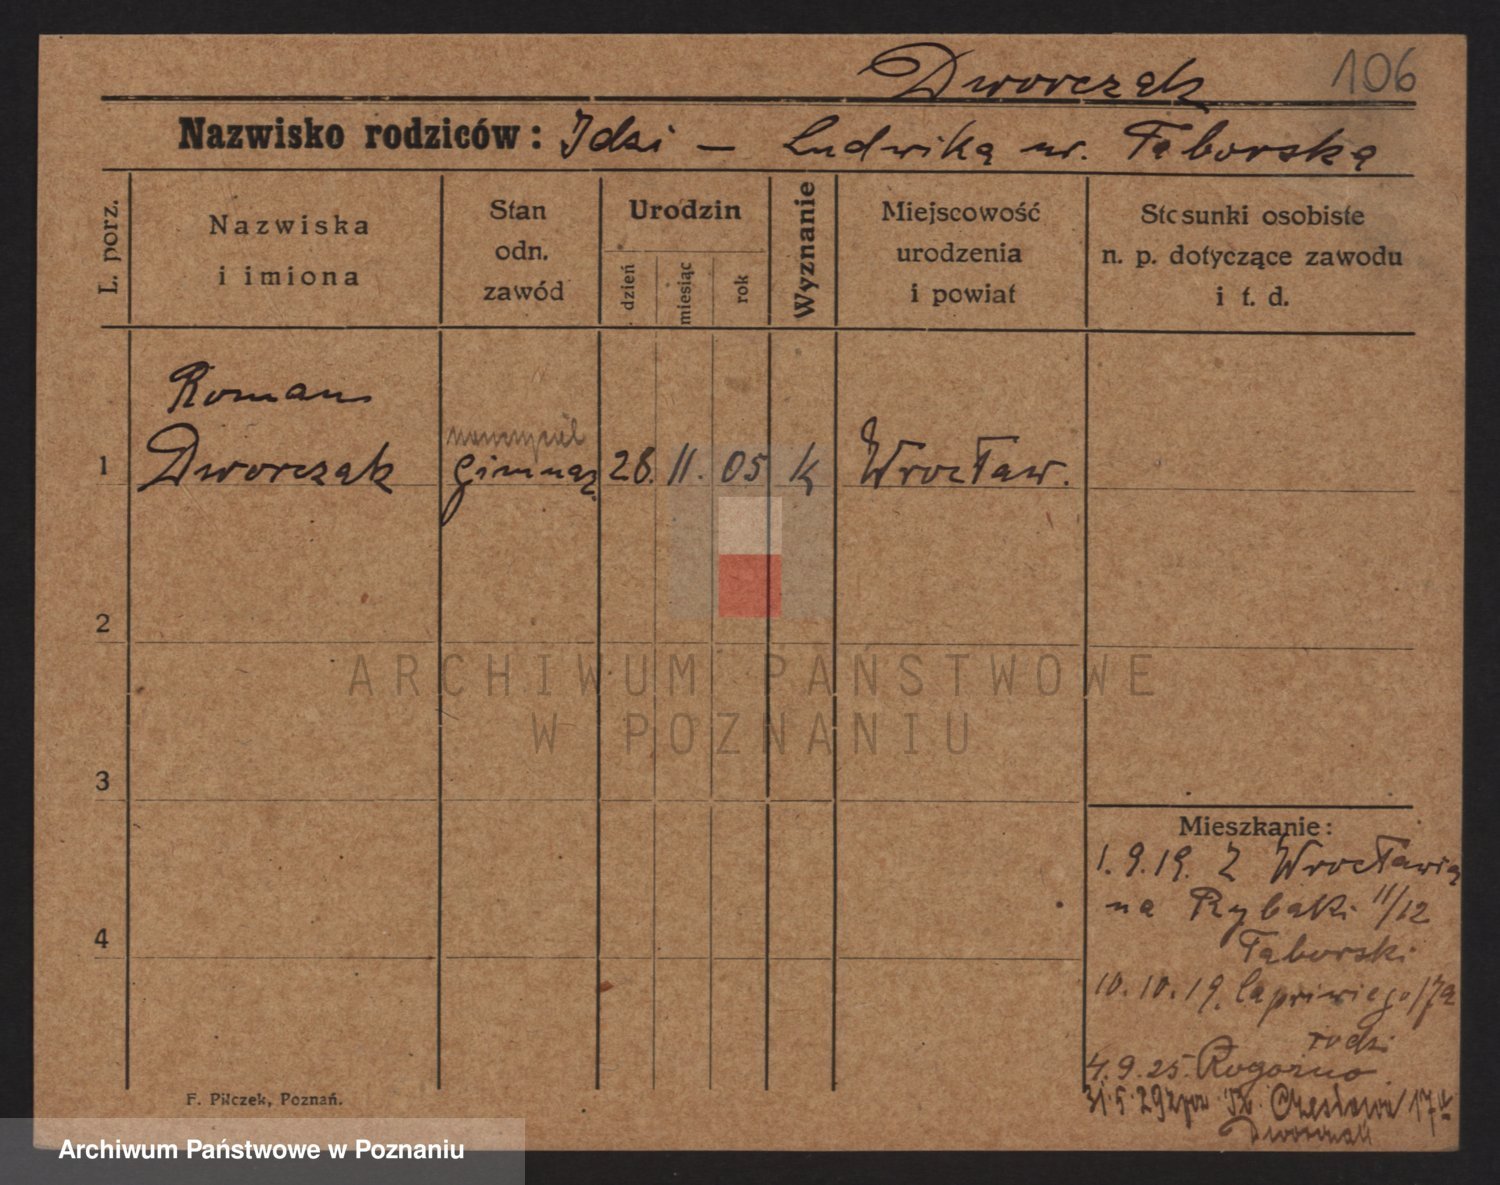 Dworczak 106
Nazwisko rodziców: Idzi — Ludwika ur. Taborska
L. porz.
Nazwiska
i imiona
Stan
odn.
zawód
Urodzin
dzień
miesiąc
rok
Wyznanie
Miejscowość
urodzenia
i powiat
Stosunki osobiste
n. p. dotyczące zawodu
i t. d.
Roman
nauczyciel
1 Dworczak gimnaz. 28. 11. 05 k Wrocław.
2
ARCHIWUM PAŃSTWOWE
W POZNANIU
3
Mieszkanie:
1.9.19. Z Wrocławia
na Rybaki 11/12
Taborski
4
10.10.19. Capriwiego 17a
rodzi
4.9.25. Rogoźno
31.5.29 Czesława 17
Dworczak
F. Pilczek, Poznań.
Archiwum Państwowe w Poznaniu